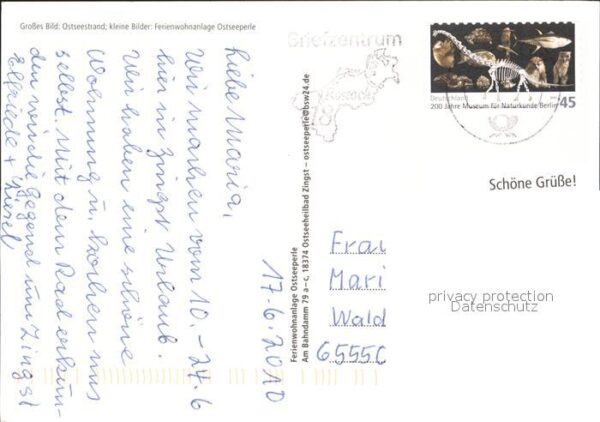 Großes Bild: Ostseestrand; kleine Bilder: Ferienwohnanlage Ostseeperle
17.6.2010
Liebe Maria,
Wir machen vom 10.-24.6
hier in Zingst Urlaub.
Wir haben eine schöne
Wohnung u. kochen uns
selbst. Mit dem Rad erkun-
den wir die Gegend um Zingst
Elfriede + Liesel
Ferienwohnanlage Ostseeperle
Am Bahndamm 79 a–c, 18374 Ostseeheilbad Zingst – ostseeperle@bsw24.de
Briefzentrum
Rostock
18
Deutschland
200 Jahre Museum für Naturkunde Berlin
45
Schöne Grüße!
Frau
Mari
Wald
65550
privacy protection
Datenschutz